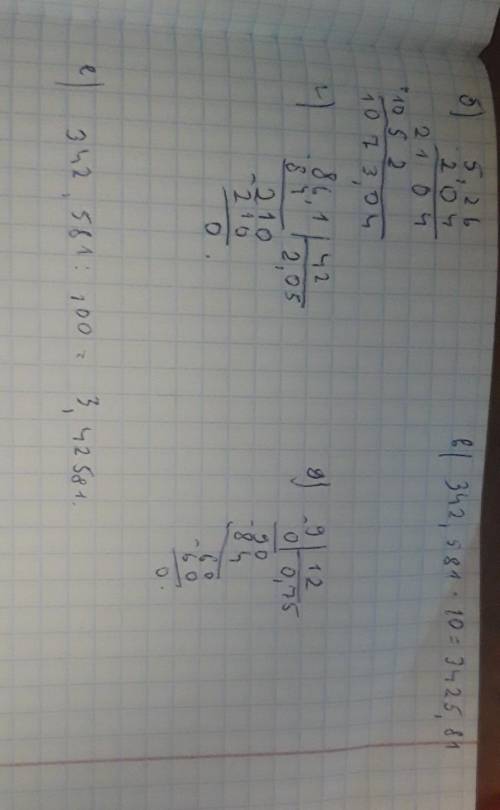 б) 5,26
204
2104
+1052
1073,04
в) 342,581 · 10 = 3425,81
г) 86,1 | 42
84 2,05
-210
210
0.
д) -9 | 12
0 0,75
-90
84
-60
60
0.
е) 342,581 : 100 = 3,42581.